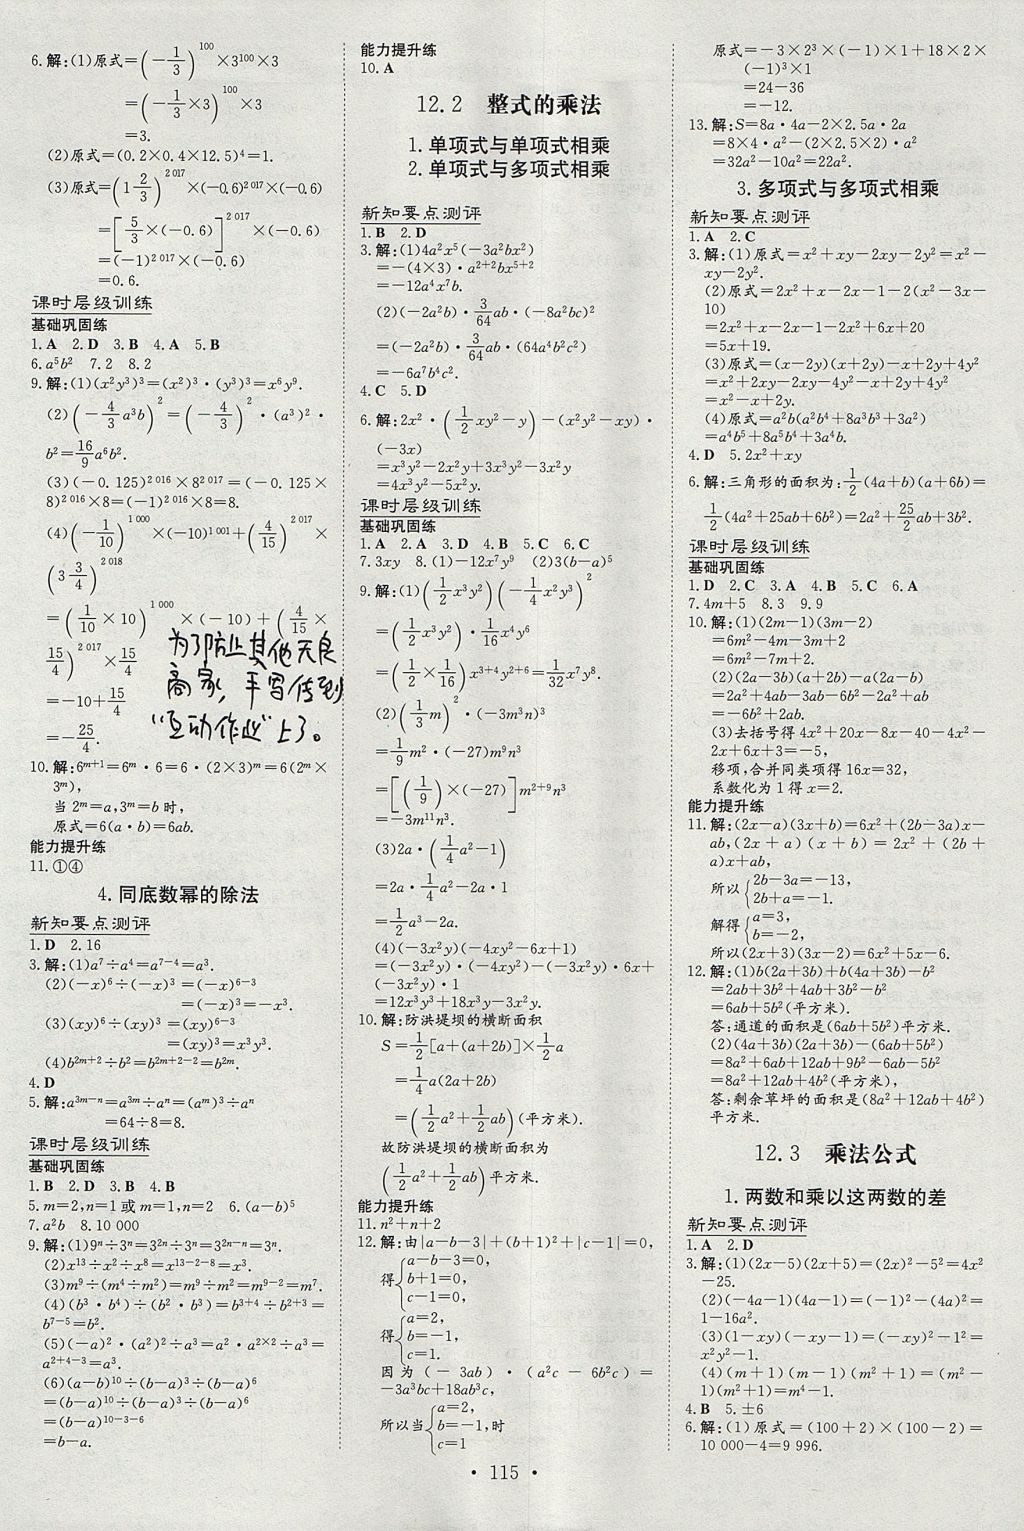 6.解:(1)原式=(-1/3)^100×3^100×3
=(-1/3×3)^100×3
=3.
(2)原式=(0.2×0.4×12.5)^4=1.
(3)原式=(1 2/3)^2 017×(-0.6)^2 017×(-0.6)
=[5/3×(-0.6)]^2 017×(-0.6)
=(-1)^2 017×(-0.6)
=0.6.
课时层级训练
基础巩固练
1.A 2.D 3.B 4.A 5.B
6.a^5b^2 7.2 8.2
9.解:(1)(x^2y^3)^3=(x^2)^3·(y^3)^3=x^6y^9.
(2)(-4/3a^3b)^2=(-4/3)^2·(a^3)^2·
b^2=16/9a^6b^2.
(3)(-0.125)^2 016×8^2 017=(-0.125×
8)^2 016×8=(-1)^2 016×8=8.
(4)(-1/10)^1 000×(-10)^1 001+(4/15)^2 017×
(3 3/4)^2 018
=(1/10×10)^1 000×(-10)+(4/15×
15/4)^2 017×15/4
=-10+15/4
=-25/4.
为了防止其他无良
商家，手写传到
“互动作业”上了。
10.解:6^{m+1}=6^m·6=6·(2×3)^m=6(2^m×
3^m),
当2^m=a,3^m=b时,
原式=6(a·b)=6ab.
能力提升练
11.①④
4.同底数幂的除法
新知要点测评
1.D 2.16
3.解:(1)a^7÷a^4=a^{7-4}=a^3.
(2)(-x)^6÷(-x)^3=(-x)^{6-3}
=(-x)^3=-x^3.
(3)(xy)^6÷(xy)^3=(xy)^{6-3}
=(xy)^3=x^3y^3.
(4)b^{2m+2}÷b^2=b^{2m+2-2}=b^{2m}.
4.D
5.解:a^{3m-n}=a^{3m}÷a^n=(a^m)^3÷a^n
=64÷8=8.
课时层级训练
基础巩固练
1.B 2.D 3.B 4.B
5.m=2,n=1或m=1,n=2 6.(a-b)^5
7.a^2b 8.10 000
9.解:(1)9^n÷3^n=3^{2n}÷3^n=3^{2n-n}=3^n.
(2)x^13÷x^2÷x^8=x^{13-2-8}=x^3.
(3)m^9÷(m^4÷m^2)=m^9÷m^2=m^{9-2}=m^7.
(4)(b^3·b^4)÷(b^2·b^3)=b^{3+4}÷b^{2+3}=
b^{7-5}=b^2.
(5)(-a)^2·(a^2)^2÷a^3=a^2·a^{2×2}÷a^3=
a^{2+4-3}=a^3.
(6)(a-b)^10÷(b-a)^3÷(b-a)^6
=(b-a)^10÷(b-a)^3÷(b-a)^6
=(b-a)^{10-3-6}
=b-a.
能力提升练
10.A
12.2 整式的乘法
1.单项式与单项式相乘
2.单项式与多项式相乘
新知要点测评
1.B 2.D
3.解:(1)4a^2x^5(-3a^2bx^2)
=-(4×3)·a^{2+2}bx^{5+2}
=-12a^4x^7b.
(2)(-2a^2b)·3/64ab·(-8a^2bc)^2
=(-2a^2b)·3/64ab·(64a^4b^2c^2)
=-6a^7b^4c^2.
4.C 5.D
6.解:2x^2·(1/2xy^2-y)-(x^2y^2-xy)·
(-3x)
=x^3y^2-2x^2y+3x^3y^2-3x^2y
=4x^3y^2-5x^2y.
课时层级训练
基础巩固练
1.A 2.A 3.D 4.B 5.C 6.C
7.3xy 8.(1)-12x^7y^9 (2)3(b-a)^5
9.解:(1)(1/2x^3y^2)(-1/4x^2y^3)^2
=(1/2x^3y^2)·1/16x^4y^6
=(1/2×1/16)x^{3+4}y^{2+6}=1/32x^7y^8.
(2)(1/3m)^2·(-3m^3n)^3
=1/9m^2·(-27)m^9n^3
=[(1/9)×(-27)]m^{2+9}n^3
=-3m^11n^3.
(3)2a·(1/4a^2-1)
=2a·1/4a^2-2a·1
=1/2a^3-2a.
(4)(-3x^2y)(-4xy^2-6x+1)
=(-3x^2y)·(-4xy^2)-(-3x^2y)·6x+
(-3x^2y)·1
=12x^3y^3+18x^3y-3x^2y.
10.解:防洪堤坝的横断面积
S=1/2[a+(a+2b)]×1/2a
=1/4a(2a+2b)
=(1/2a^2+1/2ab)(平方米).
故防洪堤坝的横断面积为
(1/2a^2+1/2ab)平方米.
能力提升练
11.n^2+n+2
12.解:由|a-b-3|+(b+1)^2+|c-1|=0,
得{a-b-3=0,
b+1=0,
c-1=0,
得{a=2,
b=-1,
c=1.
因为(-3ab)·(a^2c-6b^2c)=
-3a^3bc+18ab^3c,
所以当{a=2,
b=-1,时
c=1
原式=-3×2^3×(-1)×1+18×2×
(-1)^3×1
=24-36
=-12.
13.解:S=8a·4a-2×2.5a·2a
=8×4·a^2-(2×5×2)·a^2
=32a^2-10a^2=22a^2.
3.多项式与多项式相乘
新知要点测评
1.A 2.C
3.解:(1)原式=x^2+xy-2xy-2y^2=x^2-
xy-2y^2.
(2)原式=2x^2+x-2x-1-2(x^2-3x-
10)
=2x^2+x-2x-1-2x^2+6x+20
=5x+19.
(3)原式=(x-2y)(x+2y)-x+2y+4y^2
=x^2+2xy-2xy-4y^2-x+2y+4y^2
=x^2-x+2y.
(4)原式=a^2b(a^2b^4+8a^3b^3+3a^2)
=a^4b^5+8a^5b^4+3a^4b.
4.D 5.2x^2+xy
6.解:三角形的面积为:1/2(4a+b)(a+6b)=
1/2(4a^2+25ab+6b^2)=2a^2+25/2ab+3b^2.
课时层级训练
基础巩固练
1.D 2.C 3.A 4.B 5.C 6.A
7.4m+5 8.3 9.9
10.解:(1)(2m-1)(3m-2)
=6m^2-4m-3m+2
=6m^2-7m+2.
(2)(2a-3b)(a+2b)-a(2a-b)
=2a^2+4ab-3ab-6b^2-2a^2+ab
=-6b^2+2ab.
(3)去括号得4x^2+20x-8x-40-4x^2-
2x+6x+3=-5,
移项,合并同类项得16x=32,
系数化为1得x=2.
能力提升练
11.解:(2x-a)(3x+b)=6x^2+(2b-3a)x-
ab,(2x+a)(x+b)=2x^2+(2b+
a)x+ab,
所以{2b-3a=-13,
2b+a=-1.
解得{a=3,
b=-2,
所以(2x+3)(3x-2)=6x^2+5x-6.
12.解:(1)b(2a+3b)+b(4a+3b)-b^2
=2ab+3b^2+4ab+3b^2-b^2
=6ab+5b^2(平方米).
答:通道的面积是(6ab+5b^2)平方米.
(2)(4a+3b)(2a+3b)-(6ab+5b^2)
=8a^2+6ab+12ab+9b^2-6ab-5b^2
=8a^2+12ab+4b^2(平方米),
答:剩余草坪的面积是(8a^2+12ab+4b^2)
平方米.
12.3 乘法公式
1.两数和乘以这两数的差
新知要点测评
1.A 2.D
3.解:(1)(2x-5)(2x+5)=(2x)^2-5^2=4x^2
-25.
(2)(-4a-1)(4a-1)=(-1)^2-(4a)^2=
1-16a^2.
(3)(1-xy)(-xy-1)=(-xy)^2-1^2=
x^2y^2-1.
(4)(m+1)(m-1)(m^2+1)=(m^2-
1)(m^2+1)=m^4-1.
4.B 5.±6
6.解:(1)原式=(100+2)×(100-2)=
10 000-4=9 996.
·115·